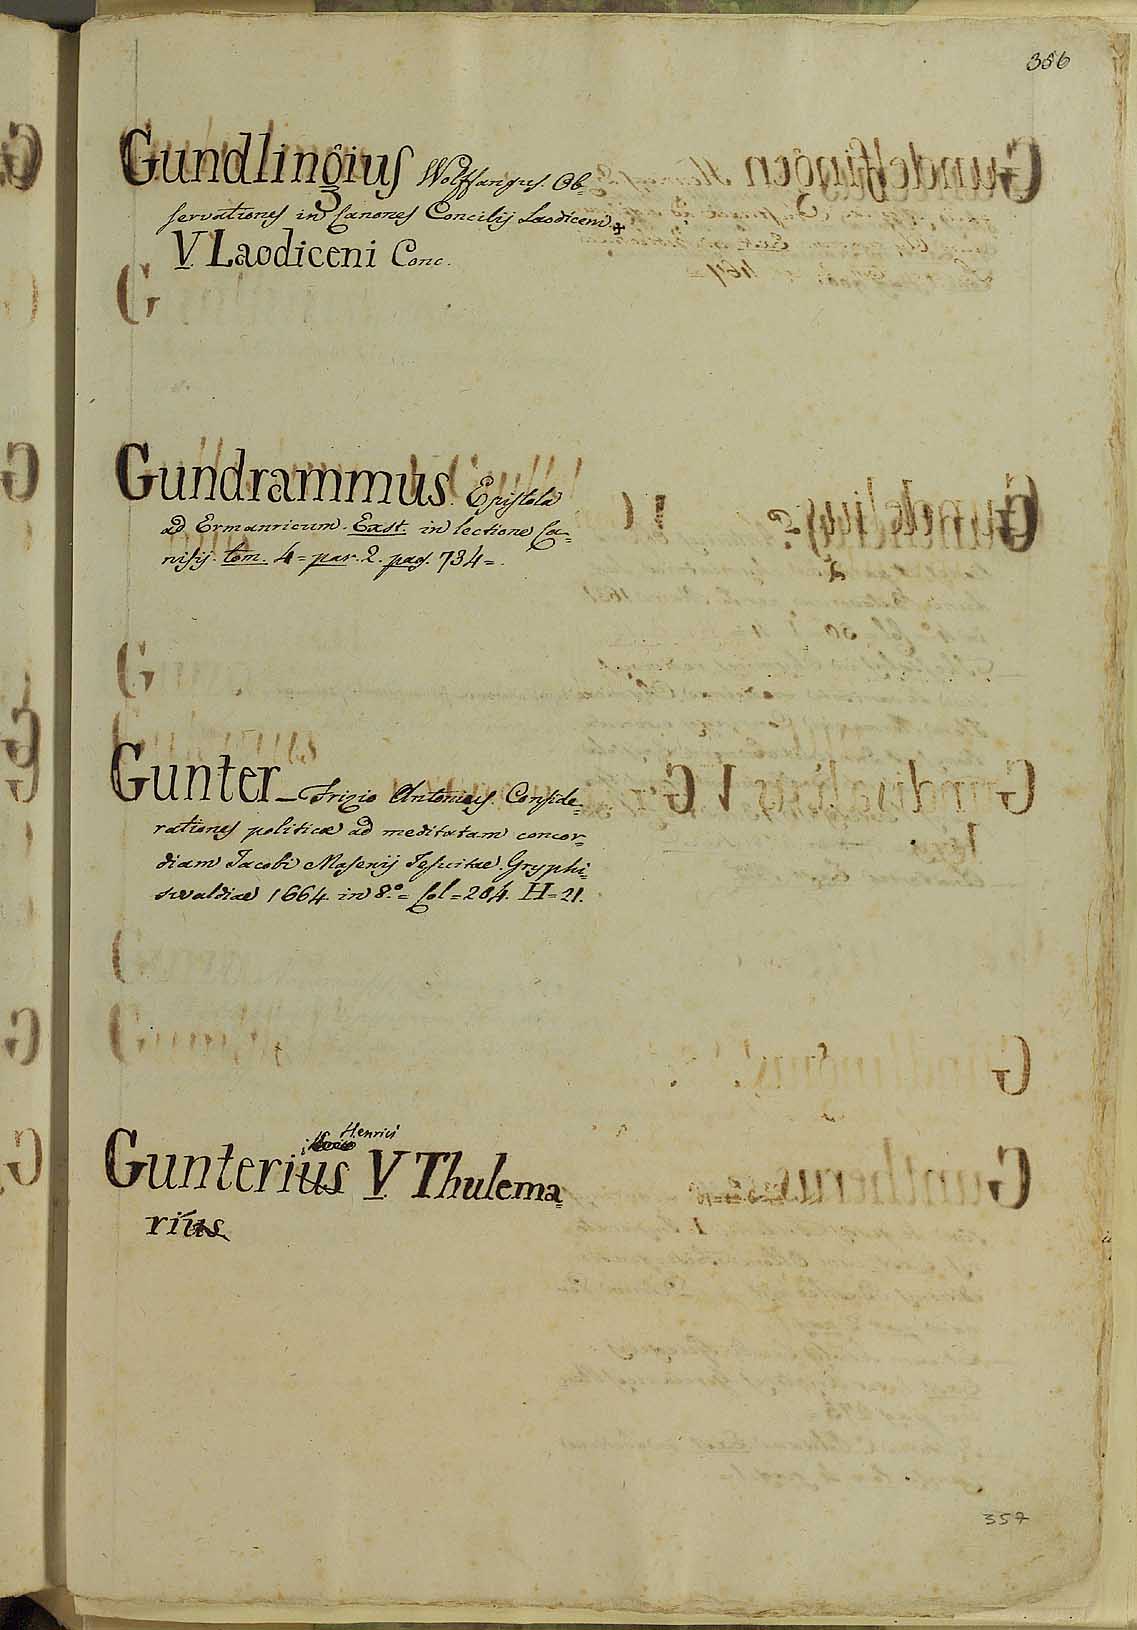 356
Gundlingius Wolffangus. Ob=
servationes in Canones Concilij Laodiceni +
V. Laodiceni Conc.
G
Gundrammus. Epistola
ad Ermanricum. Exst. in lectione Ca=
nisij. tom. 4= par. 2. pag. 734=.
G
Gunter_ Frizio Antonius. Conside=
rationes politicæ ad meditatam concor=
diam Jacobi Masenij Jesuitae. Gryphi=
swaldiae 1664. in 8.° = fol = 204. H = 21.
Henrici
Gunterius V Thulema=
rius
357